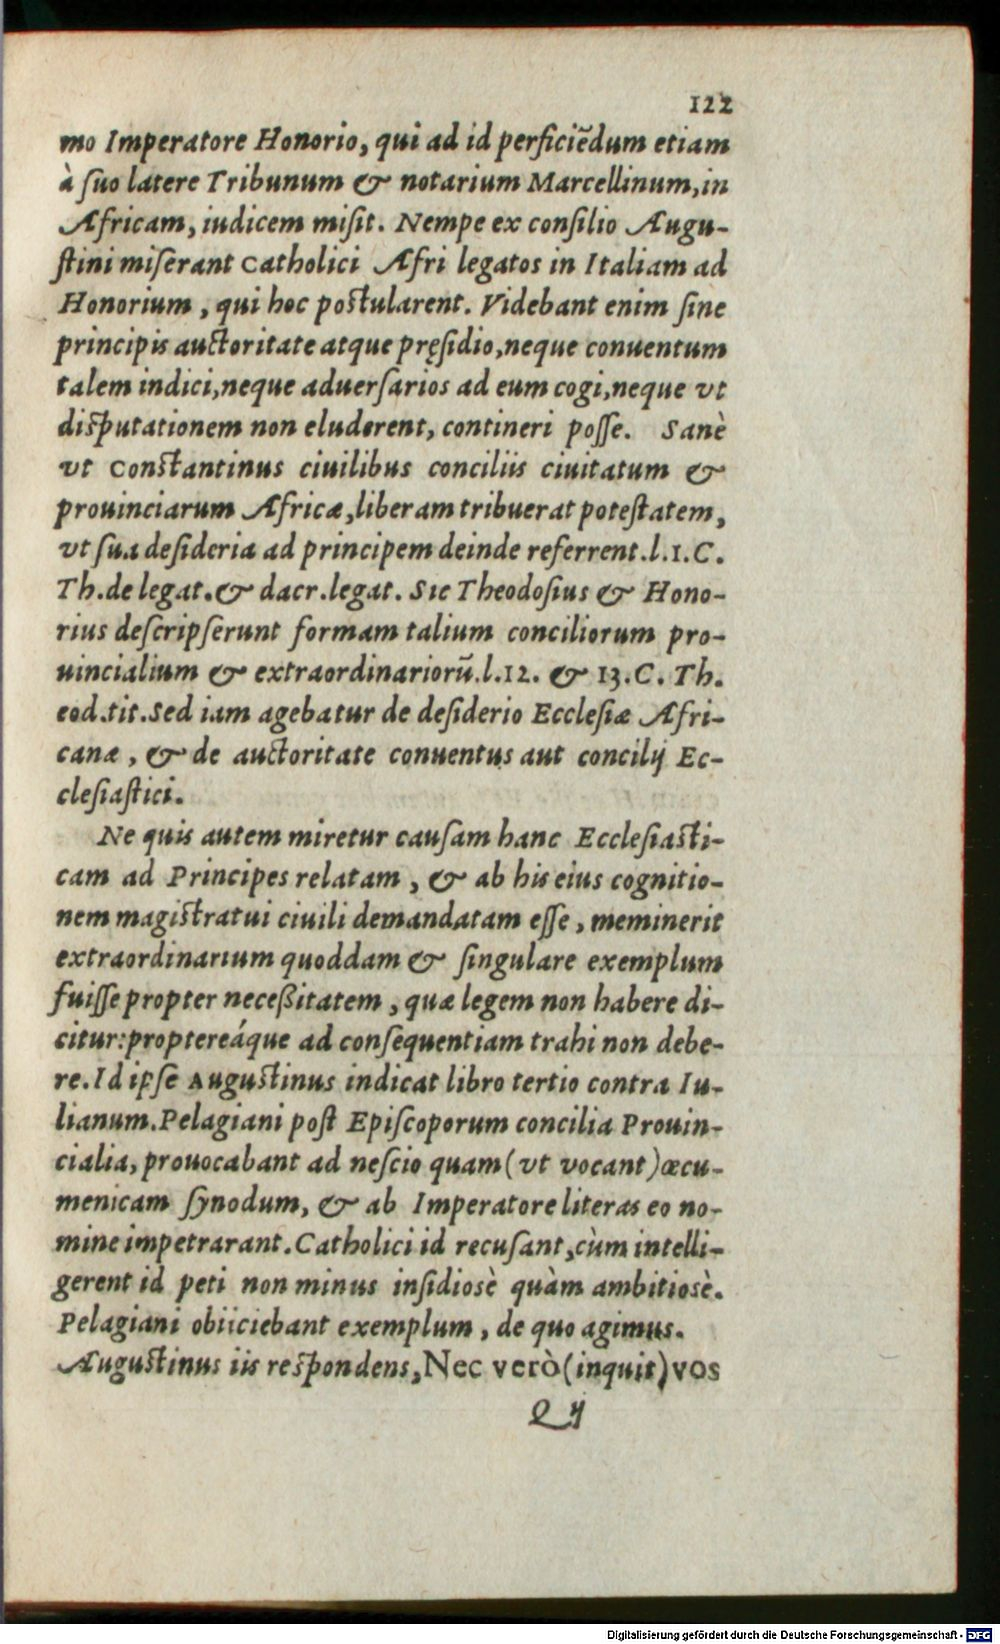 122
mo Imperatore Honorio, qui ad id perficiẽdum etiam
à ſuo latere Tribunum & notarium Marcellinum, in
Africam, iudicem miſit. Nempe ex conſilio Augu-
ſtini miſerant Catholici Afri legatos in Italiam ad
Honorium, qui hoc poſtularent. Videbant enim ſine
principis auctoritate atque pręſidio, neque conuentum
talem indici, neque aduerſarios ad eum cogi, neque vt
diſputationem non eluderent, contineri poſſe. Sanè
vt Conſtantinus ciuilibus conciliis ciuitatum &
prouinciarum Africæ, liberam tribuerat poteſtatem,
vt ſua deſideria ad principem deinde referrent. l. 1. C.
Th. de legat. & dacr. legat. Sic Theodoſius & Hono-
rius deſcripſerunt formam talium conciliorum pro-
uincialium & extraordinariorũ. l. 12. & 13. C. Th.
eod. tit. Sed iam agebatur de deſiderio Eccleſiæ Afri-
canæ, & de auctoritate conuentus aut concilij Ec-
cleſiaſtici.
Ne quis autem miretur cauſam hanc Eccleſiaſti-
cam ad Principes relatam, & ab his eius cognitio-
nem magiſtratui ciuili demandatam eſſe, meminerit
extraordinarium quoddam & ſingulare exemplum
fuiſſe propter neceßitatem, quæ legem non habere di-
citur: proptereáque ad conſequentiam trahi non debe-
re. Id ipſe Auguſtinus indicat libro tertio contra Iu-
lianum. Pelagiani poſt Epiſcoporum concilia Prouin-
cialia, prouocabant ad neſcio quam (vt vocant) œcu-
menicam ſynodum, & ab Imperatore literas eo no-
mine impetrarant. Catholici id recuſant, cùm intelli-
gerent id peti non minus inſidiosè quàm ambitiosè.
Pelagiani obiiciebant exemplum, de quo agimus.
Auguſtinus iis reſpondens, Nec verò (inquit) vos
Q ij
Digitalisierung gefördert durch die Deutsche Forschungsgemeinschaft - DFG